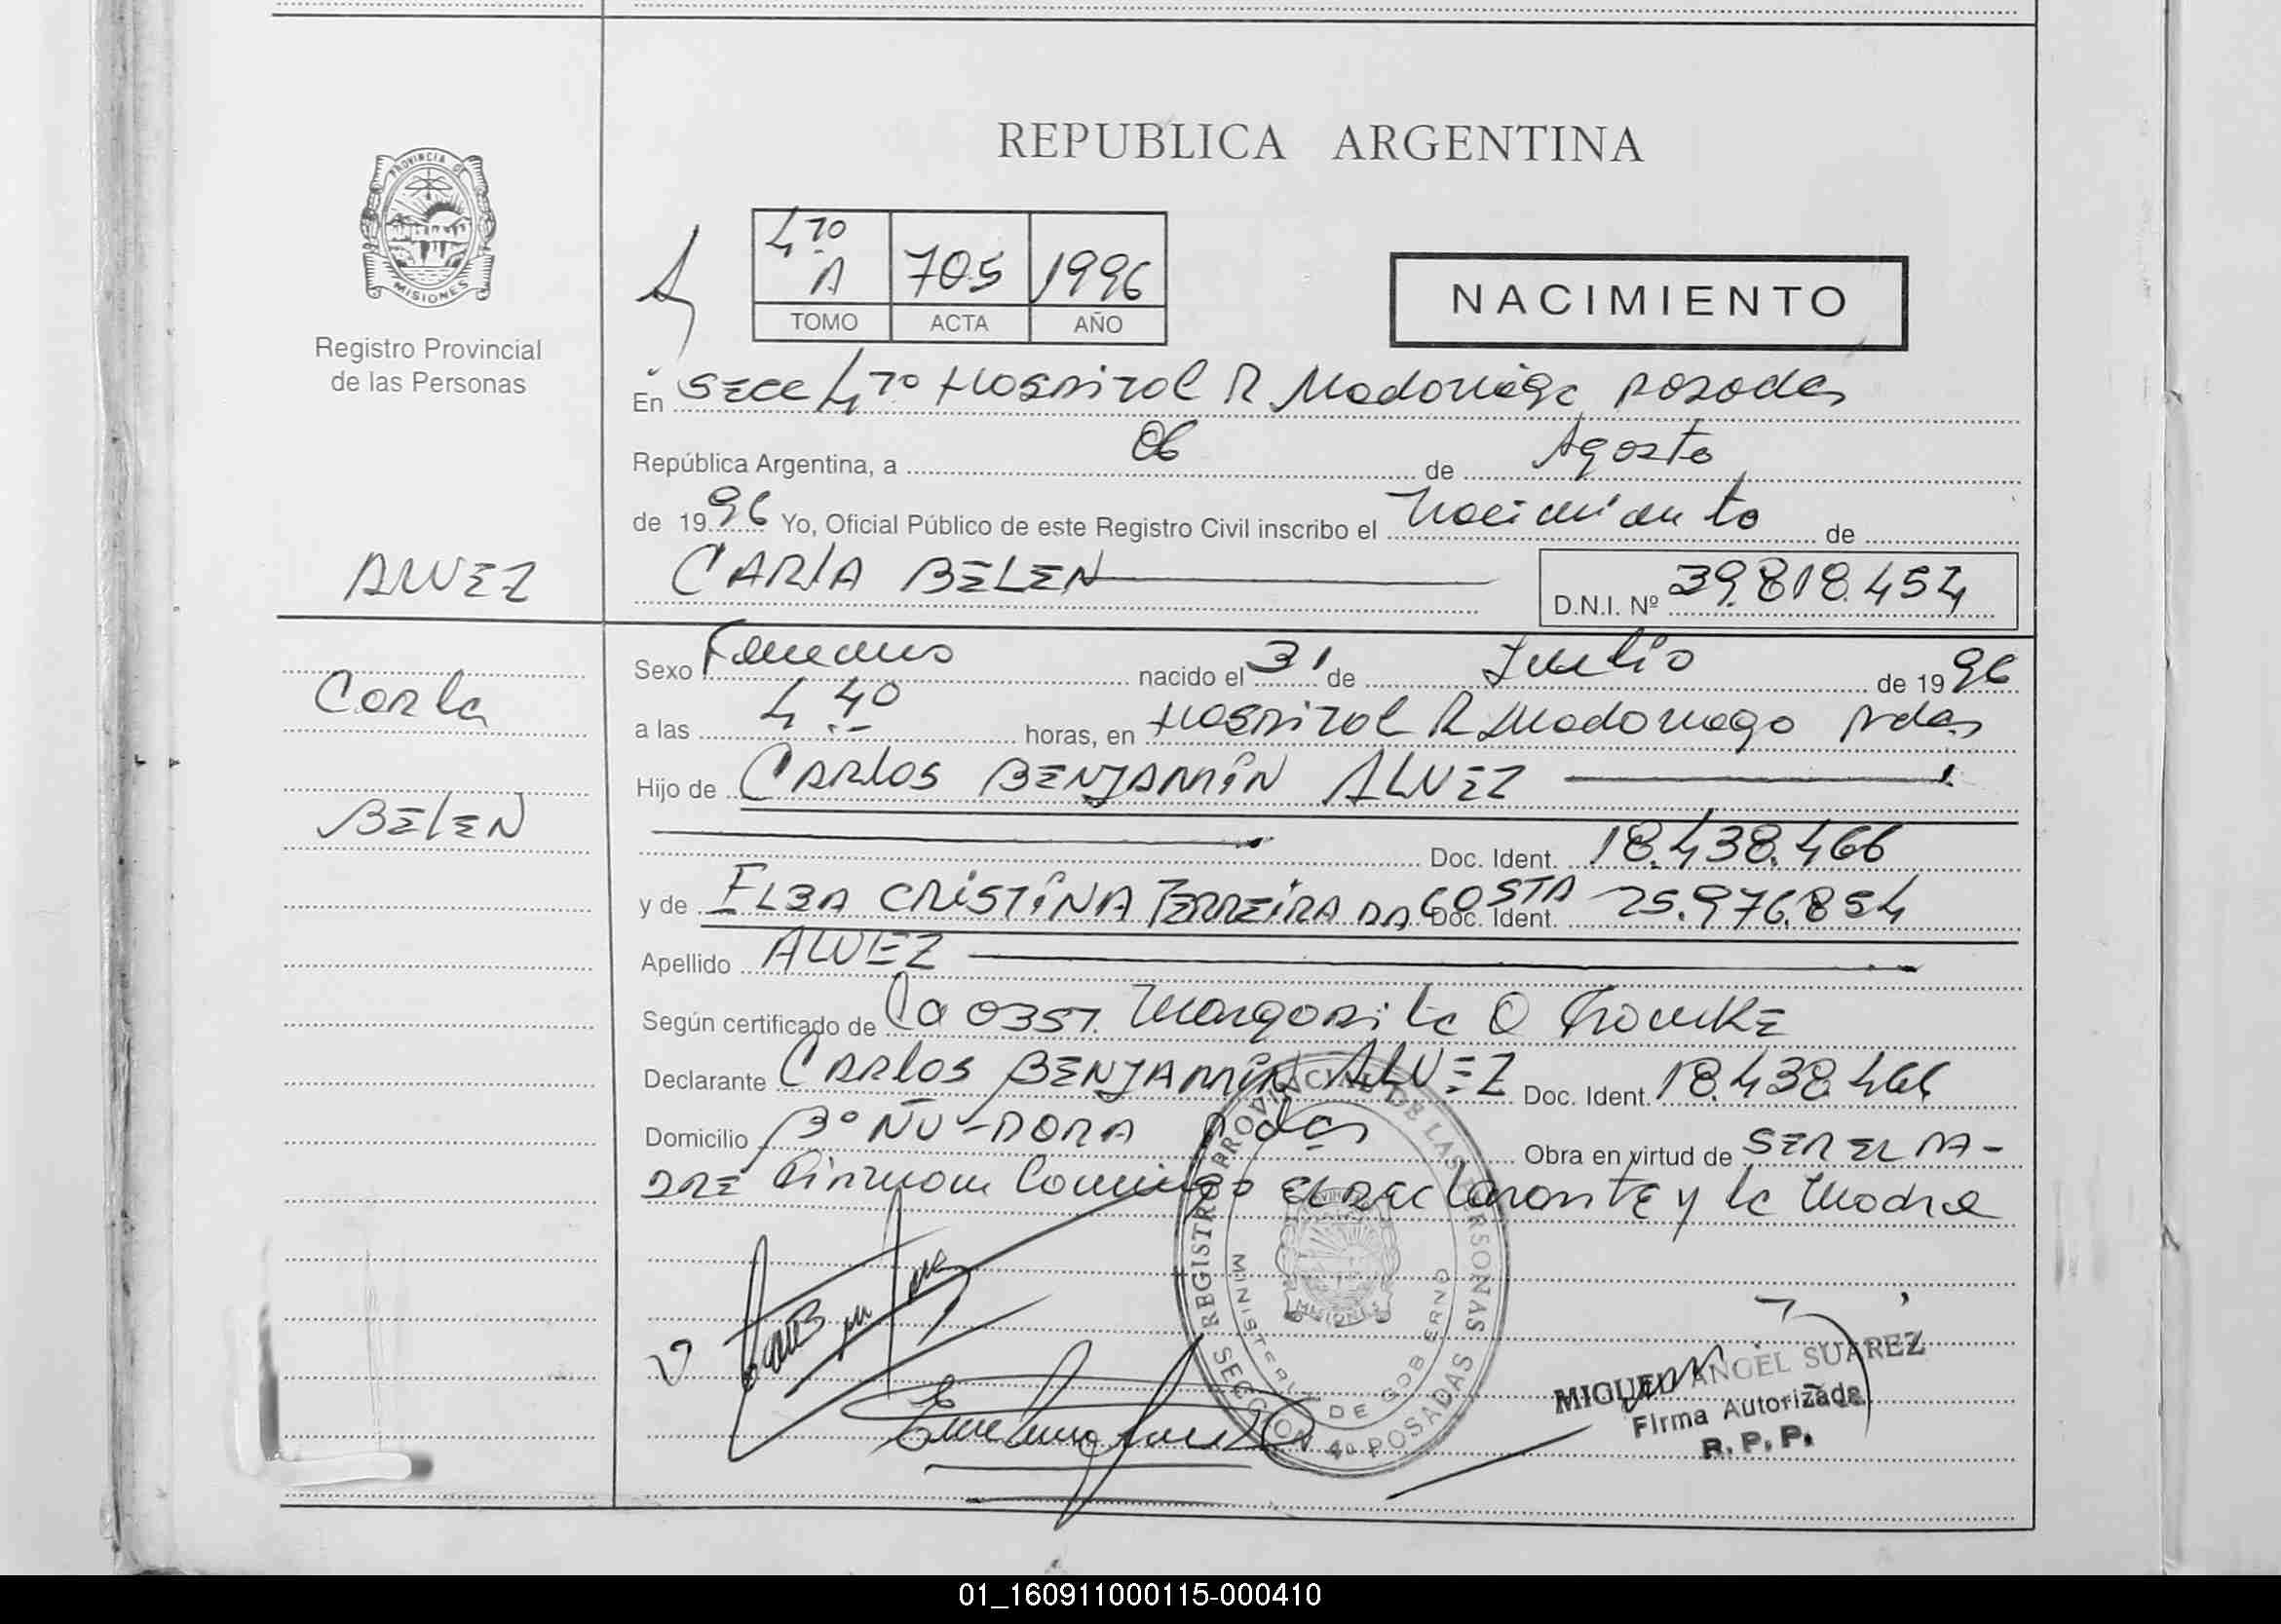 REPUBLICA ARGENTINA
PROVINCIA DE
MISIONES
Registro Provincial
de las Personas
4to A 705 1996
TOMO ACTA AÑO
NACIMIENTO
En Secc 4to Hospital R Madariaga Posadas
República Argentina, a 06 de Agosto
de 1996 Yo, Oficial Público de este Registro Civil inscribo el Nacimiento de
ALVEZ
CARLA BELEN
D.N.I. Nº 39.818.454
Carla
BELEN
Sexo Femenino nacido el 31 de Julio de 1996
a las 4 40 horas, en Hospital R Madariaga Pdas
Hijo de CARLOS BENJAMÍN ALVEZ
Doc. Ident. 18.438.466
y de ELBA CRISTINA FERREIRA DA COSTA Doc. Ident. 25.976.854
Apellido ALVEZ
Según certificado de La OBST. Margarita O
Declarante CARLOS BENJAMÍN ALVEZ Doc. Ident. 18.438.466
Domicilio Bº ÑU-PORA Pdas Obra en virtud de SER EL PA-
DRE Firman Conmigo El Declarante y la Madre
REGISTRO PROVINCIAL DE LAS PERSONAS
MINISTERIO DE GOBIERNO
MISIONES
SECCION 4a POSADAS
MIGUEL ANGEL SUAREZ
Firma Autorizada
R. P. P.
01_160911000115-000410